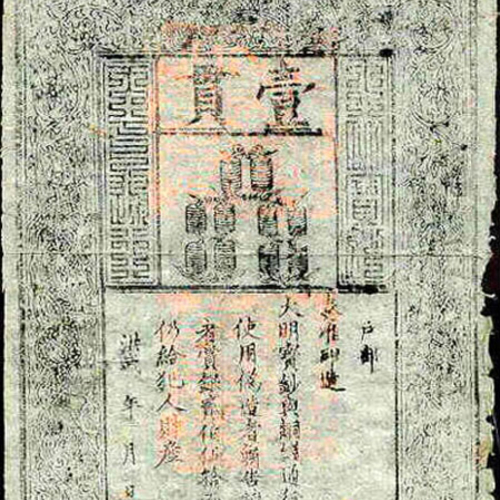 壹貫
户部
奏准印造
大明寶鈔與銅錢通
使用偽造者斬告
者賞銀貳伯伍拾
仍給犯人財產
洪武 年 月 日